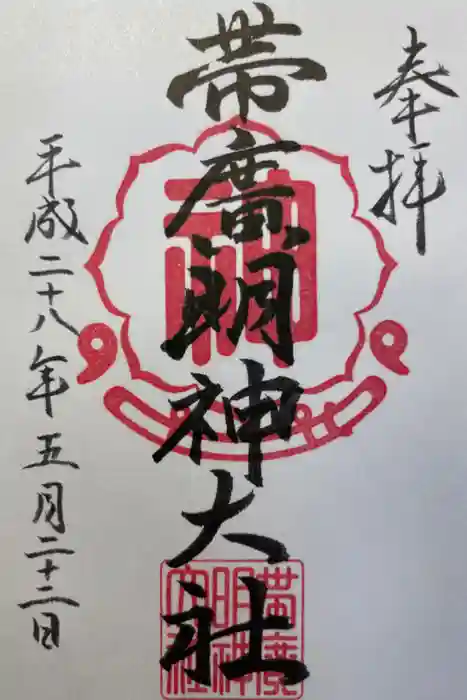 奉拝
帯廣明神大社
平成二十八年五月二十二日
帯廣
明神
大社